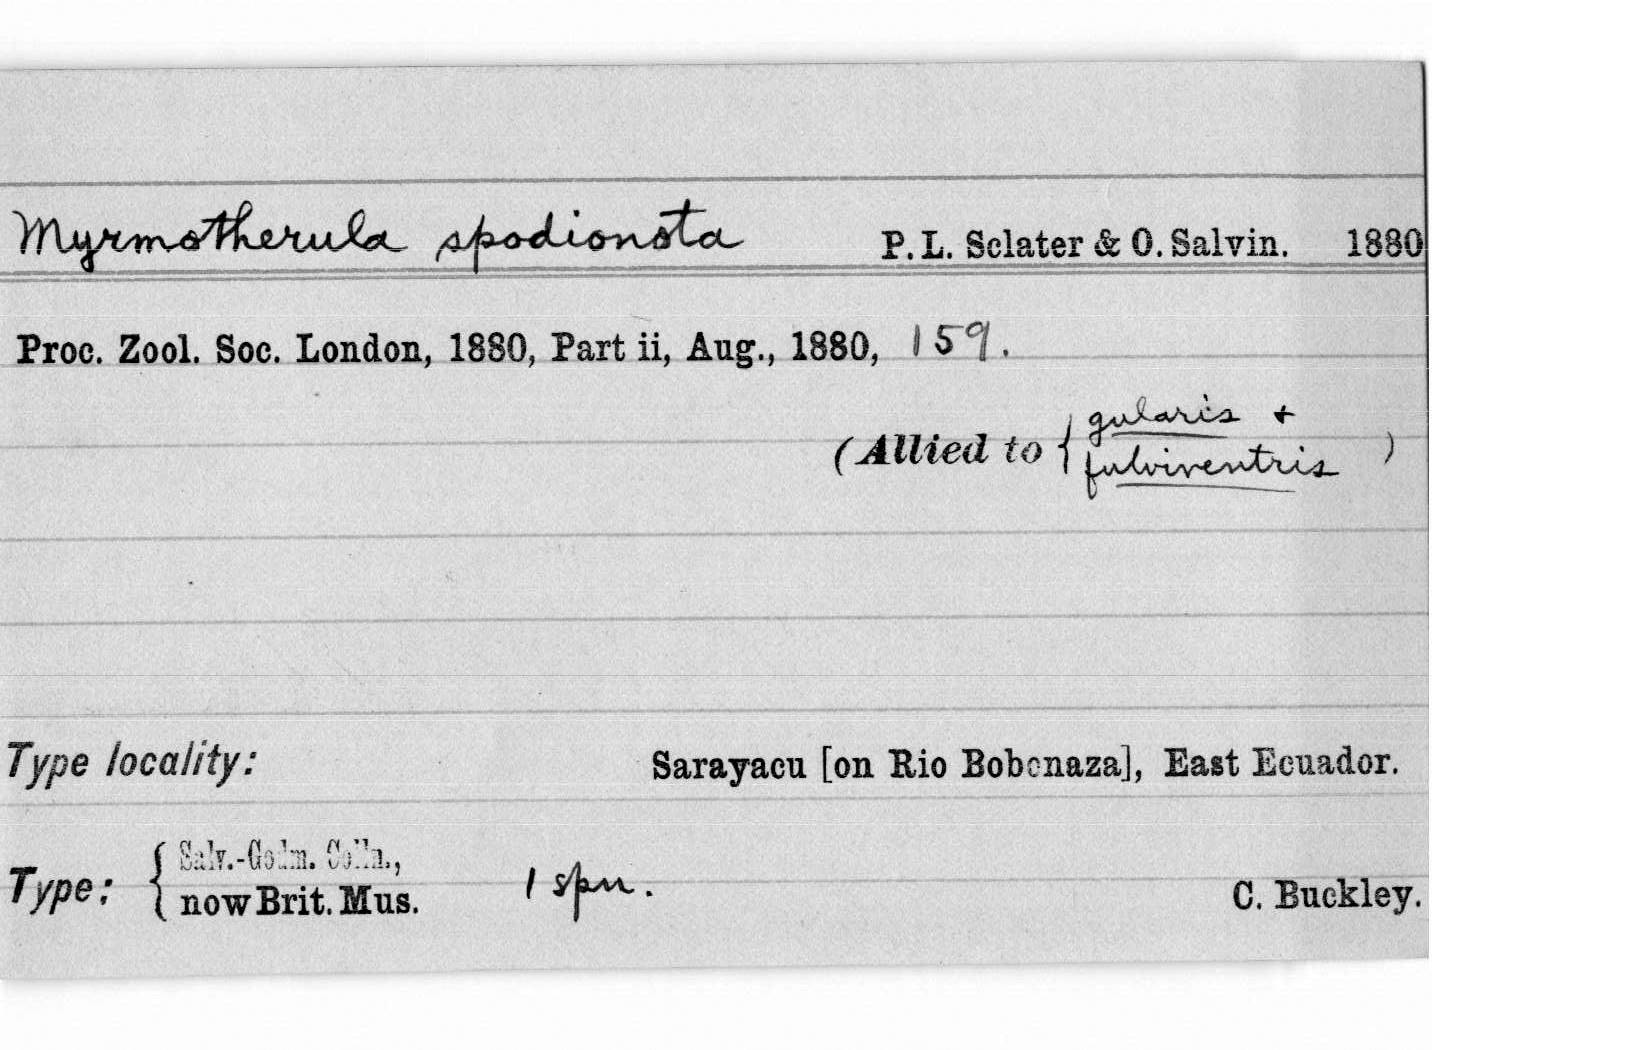 Myrmotherula spodionota P. L. Sclater & O. Salvin. 1880
Proc. Zool. Soc. London, 1880, Part ii, Aug., 1880, 159.
(Allied to { gularis +
fulviventris )
Type locality: Sarayacu [on Rio Bobonaza], East Ecuador.
Type: { Salv.-Godm. Colln.,
now Brit. Mus. 1 spn. C. Buckley.